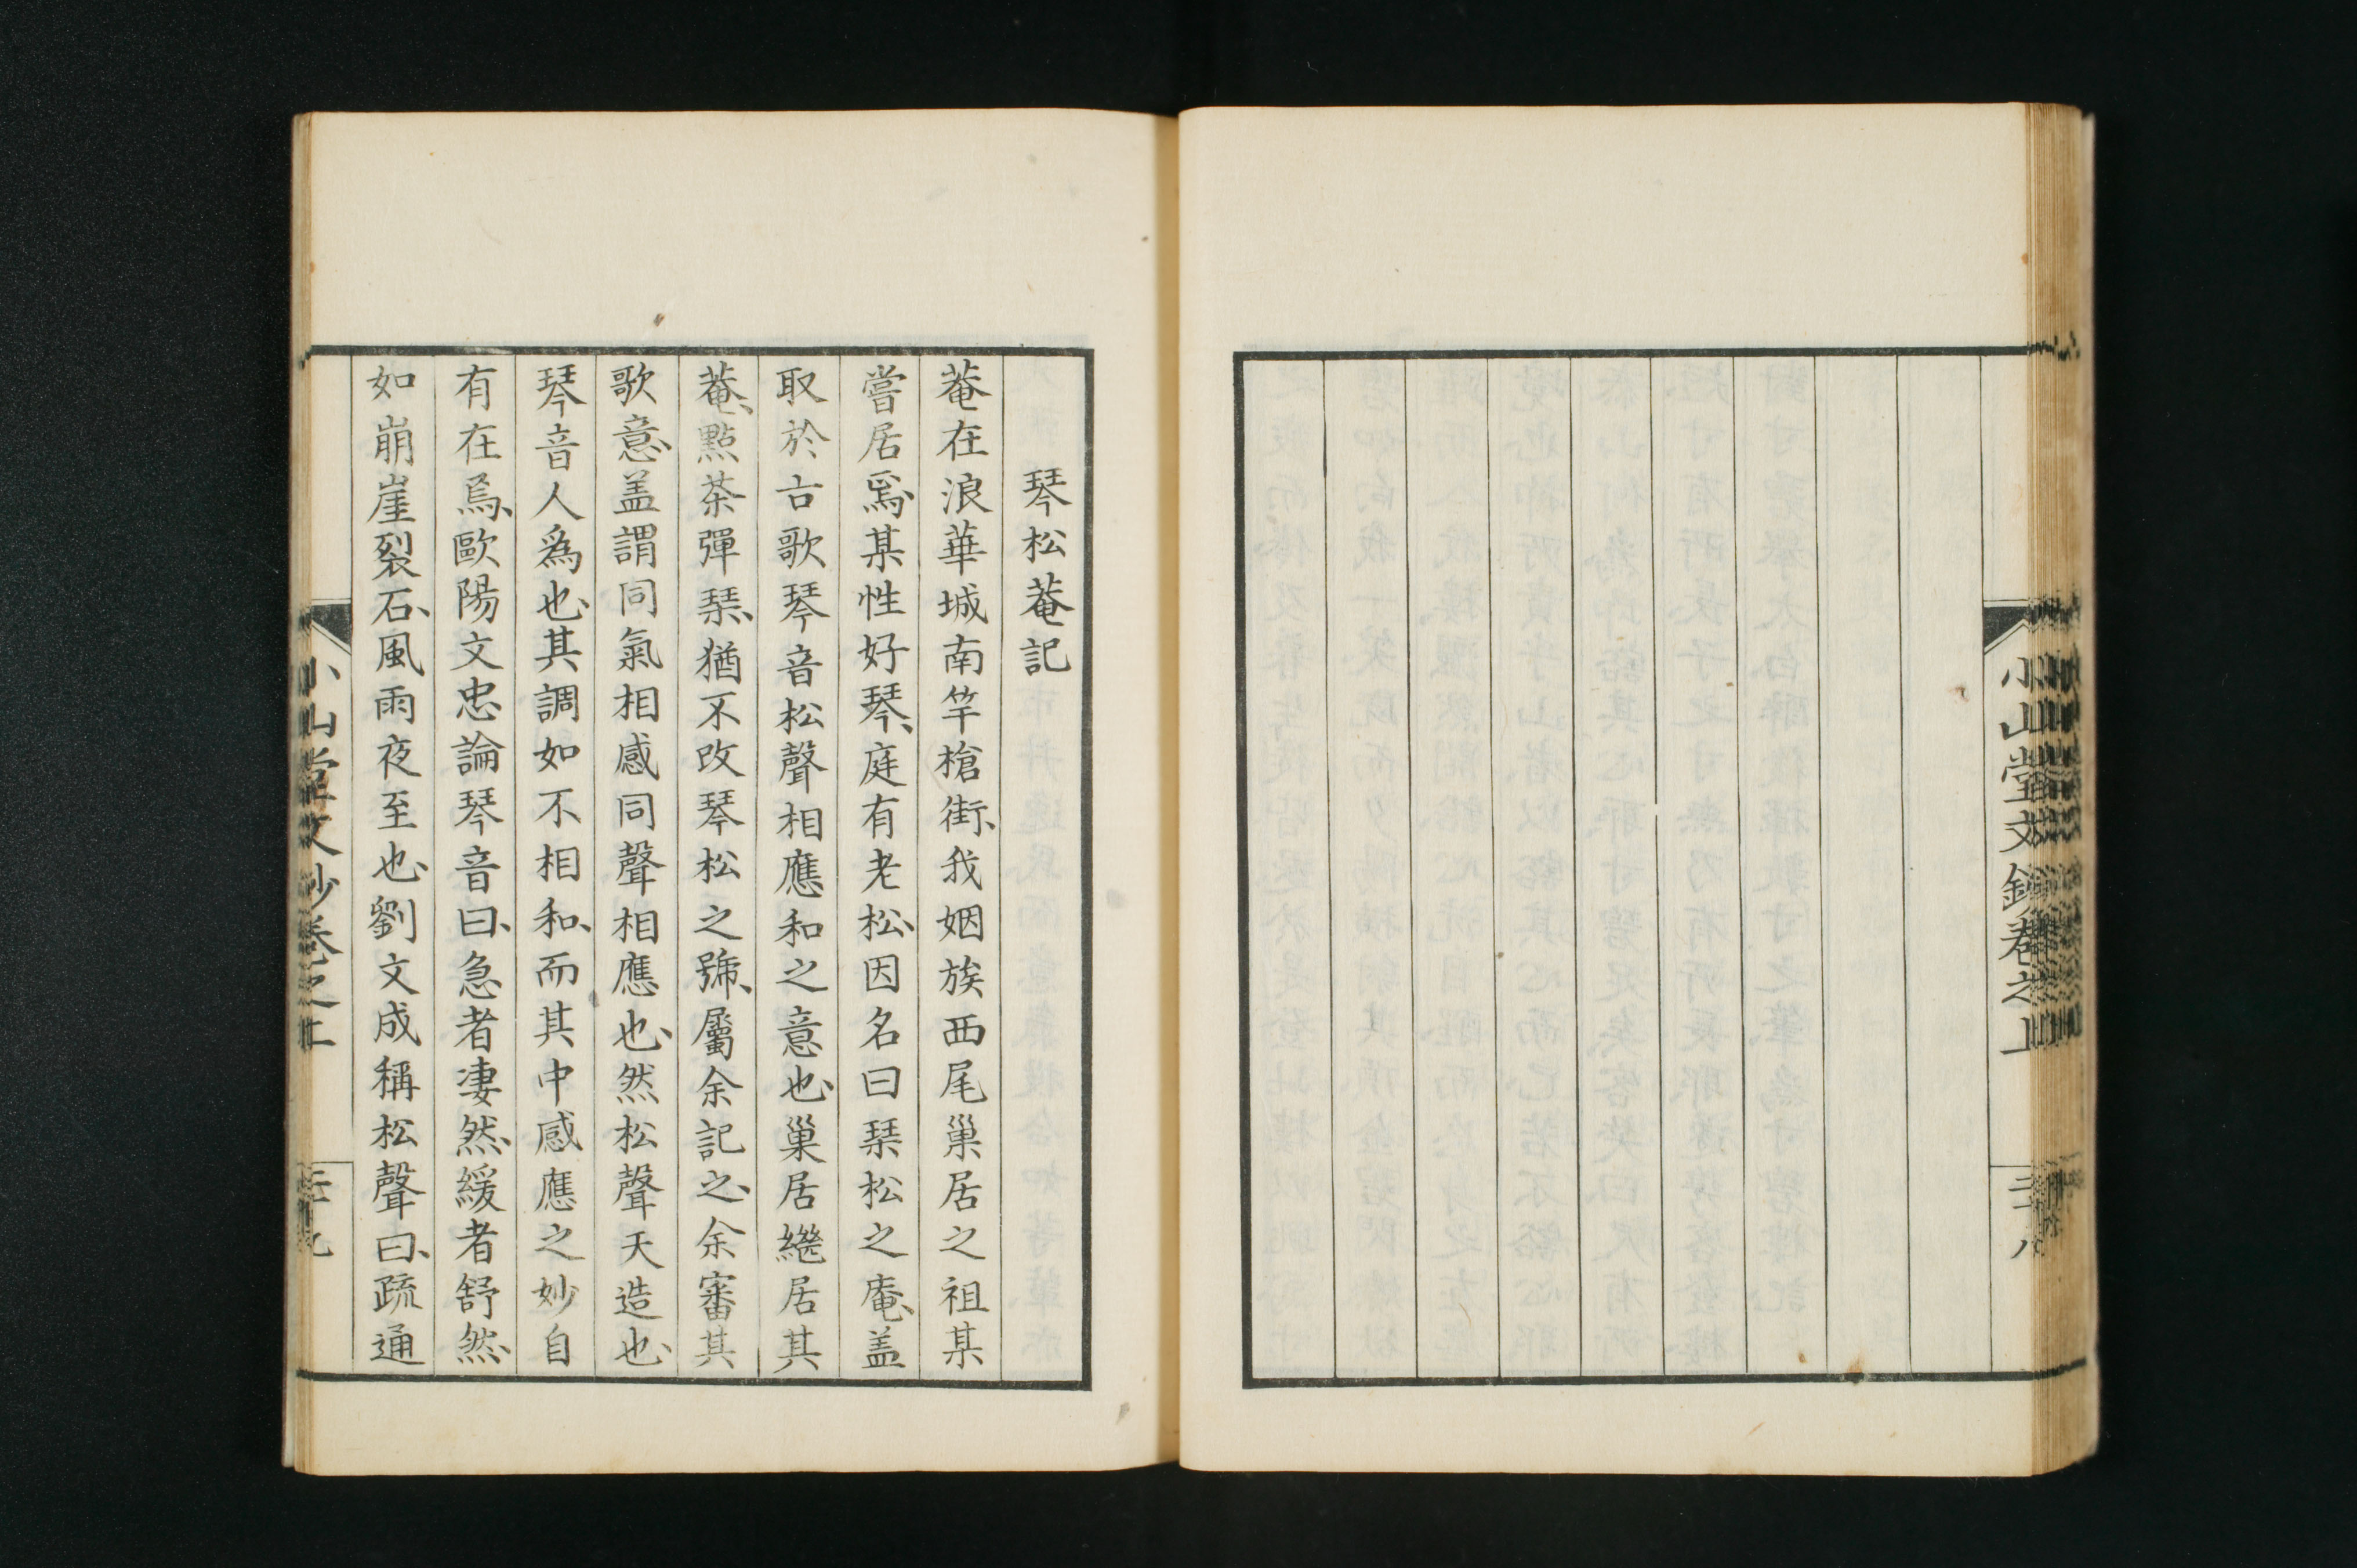 小山堂文鈔卷之上
三十八
琴松菴記
菴在浪華城南竿槍街、我姻族西尾巢居之祖某
嘗居焉、某性好琴、庭有老松、因名曰琹松之庵、盖
取於古歌琴音松聲相應和之意也、巢居繼居其
菴、點茶彈琹、猶不改琴松之號、屬余記之、余審其
歌意、盖謂同氣相感同聲相應也、然松聲天造也、
琴音人爲也、其調如不相和、而其中感應之妙自
有在焉、歐陽文忠論琴音曰、急者凄然、緩者舒然、
如崩崖裂石、風雨夜至也、劉文成稱松聲曰、疏通
小山堂文鈔卷之上
三十九